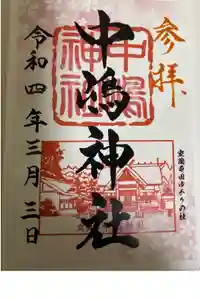 参拝
中嶋神社
中嶋
神社
令和四年三月三日
室蘭